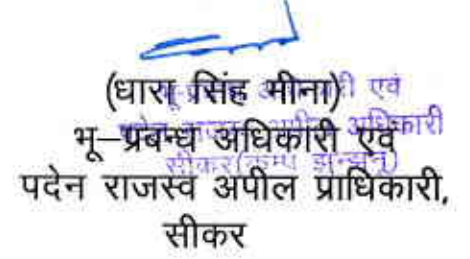 (धारा सिंह मीना)
भू–प्रबन्ध अधिकारी एवं
पदेन राजस्व अपील प्राधिकारी,
सीकर
एवं
अपील अधिकारी
सीकर(कैम्प झुन्झुनू)